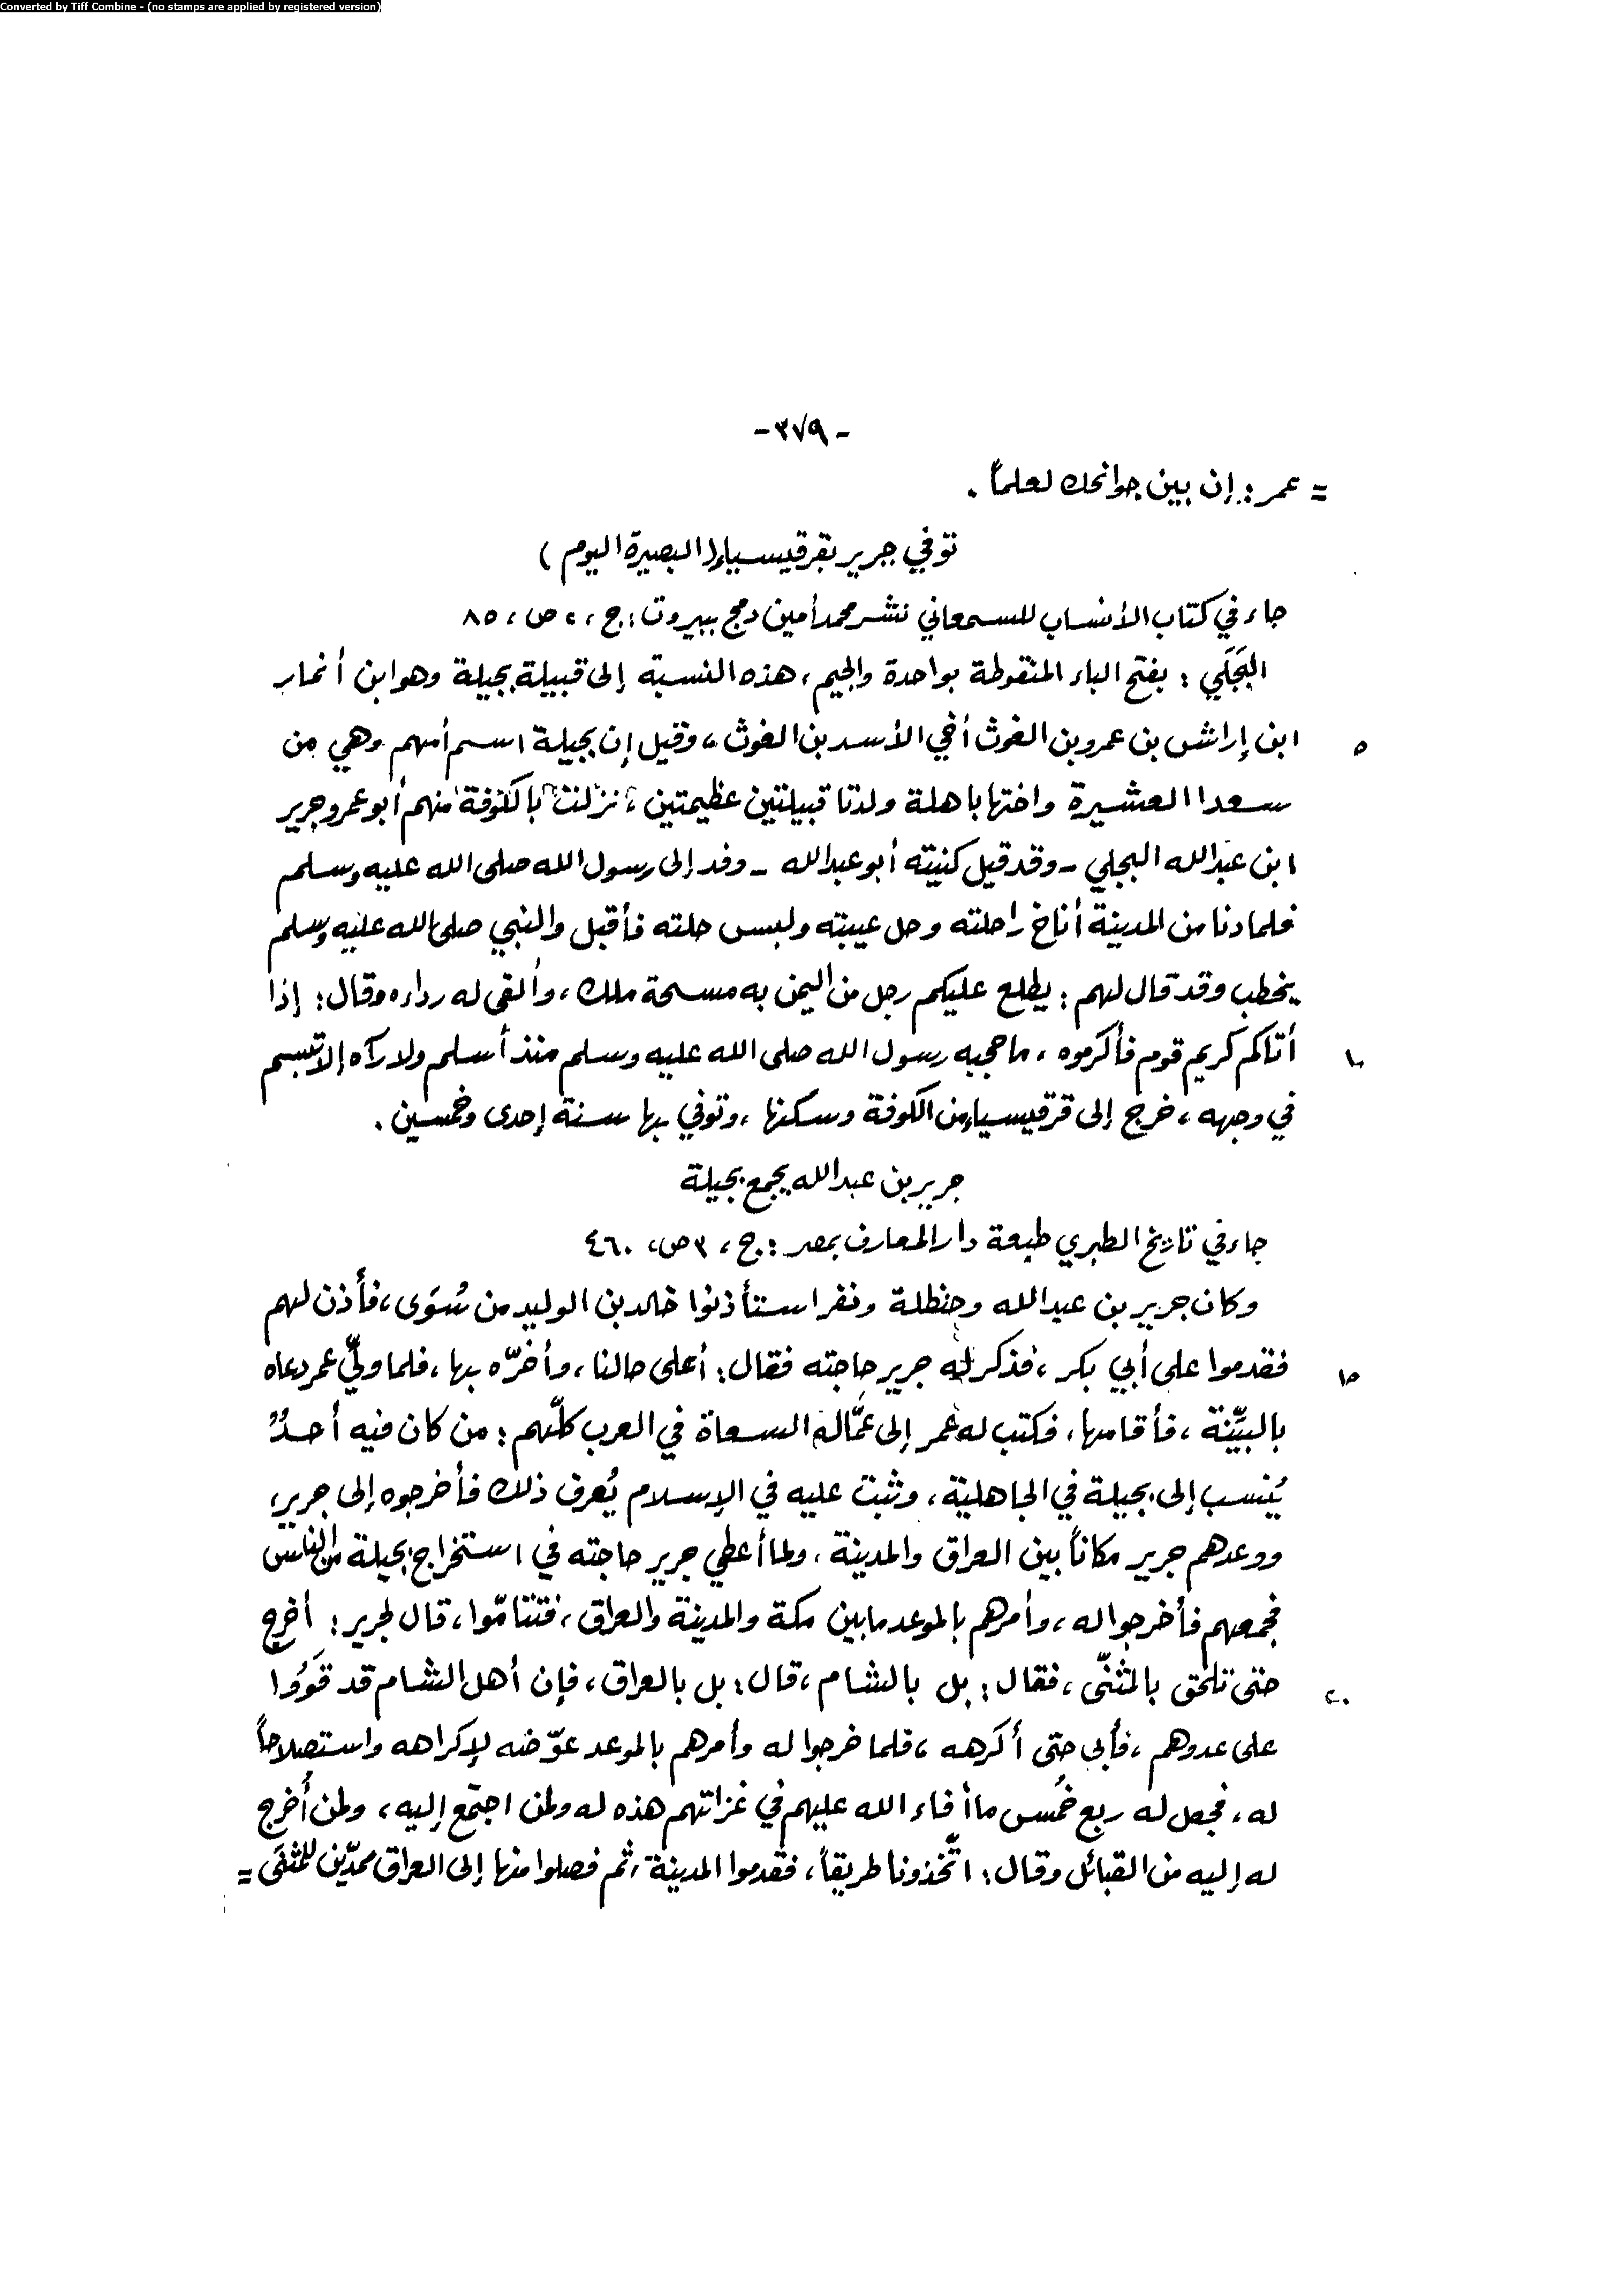 Converted by Tiff Combine - (no stamps are applied by registered version)
- ٣٧٩ -
= عمر : إن بين جوانحك لعلماً .
توفي جرير بقرقيسياء ( البصيرة اليوم )
جاء في كتاب الأنساب للسمعاني نشر محمد أمين دمج ببيروت : ج ، ٢ ص ، ٨٥
البَجَلي : بفتح الباء المنقوطة بواحدة والجيم ، هذه النسبة إلى قبيلة بجيلة وهو ابن أنمار
ابن إراش بن عمرو بن الغوث أخي الأسد بن الغوث ، وقيل إن بجيلة اسم أمهم وهي من ٥
سعد العشيرة واختها باهلة ولدتا قبيلتين عظيمتين ، نزلت بالكوفة منهم أبو عمرو جرير
ابن عبد الله البجلي - وقد قيل كنيته أبو عبد الله - وفد إلى رسول الله صلى الله عليه وسلم
فلما دنا من المدينة أناخ راحلته وحل عيبته ولبس حلته فأقبل والنبي صلى الله عليه وسلم
يخطب وقد قال لهم : يطلع عليكم رجل من اليمن به مسحة ملك ، وألقى له رداءه وقال : إذا
أتاكم كريم قوم فأكرموه ، ما حجبه رسول الله صلى الله عليه وسلم منذ أسلم ولا رآه إلا تبسم ١٠
في وجهه ، خرج إلى قرقيسياء من الكوفة وسكنها ، وتوفي بها سنة إحدى وخمسين .
جرير بن عبد الله يجمع بجيلة
جاء في تاريخ الطبري طبعة دار المعارف بمصر : ج ، ٣ ص ، ٤٦٠
وكان جرير بن عبد الله وحنظلة ونفر استأذنوا خالد بن الوليد من سُوَى ، فأَذن لهم
فقدموا على أبي بكر ، فذكر له جرير حاجته فقال : أعلى حالنا ، وأخّره بها ، فلما وليّ عمر دعاه ١٥
بالبيِّنة ، فأقامها ، فكتب له عمر إلى عمّاله السعاة في العرب كلّهم : من كان فيه أحدٌ
يُنسب إلى بجيلة في الجاهلية ، وثبت عليه في الإسلام يُعرف ذلك فأخرجوه إلى جرير ،
ووعدهم جرير مكاناً بين العراق والمدينة ، ولما أعطي جرير حاجته في استخراج بجيلة من الناس
فجمعهم فأخرجوا له ، وأمرهم بالموعد ما بين مكة والمدينة والعراق ، فتتامّوا ، قال لجرير : أخرج
حتى تلحق بالمثنّى ، فقال : بل بالشام ، قال : بل بالعراق ، فإن أهل الشام قد قَوُوا ٢٠
على عدوهم ، فأبى حتى أكرهه ، فلما خرجوا له وأمرهم بالموعد عوّضه لإكراهه واستصلاحاً
له ، فجعل له ربع خُمس ما أفاء الله عليهم في غزاتهم هذه له ولمن اجتمع إليه ، ولمن أُخرج
له إليه من القبائل وقال : اتّخذونا طريقاً ، فقدموا المدينة ، ثم فصلوا منها إلى العراق ممدّين للمثنَى =